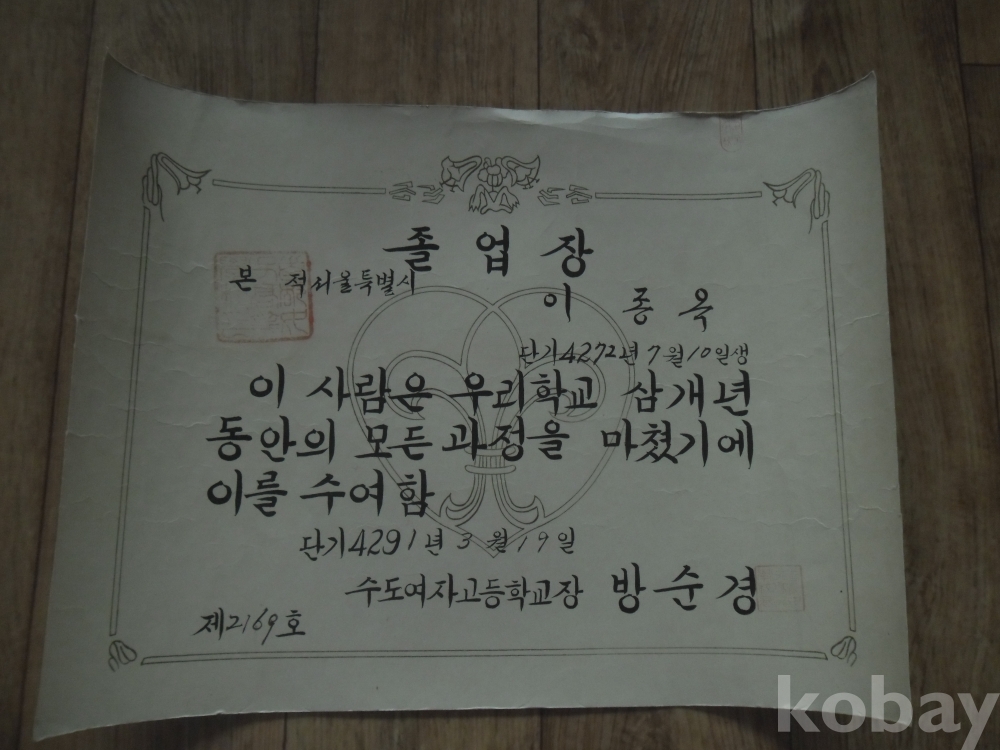 졸업장
본 적 서울특별시
이종옥
단기4272년 7월 10일생
이 사람은 우리학교 삼개년
동안의 모든 과정을 마쳤기에
이를 수여함
단기4291년 3월 19일
수도여자고등학교장 방순경
제2169호
kobay